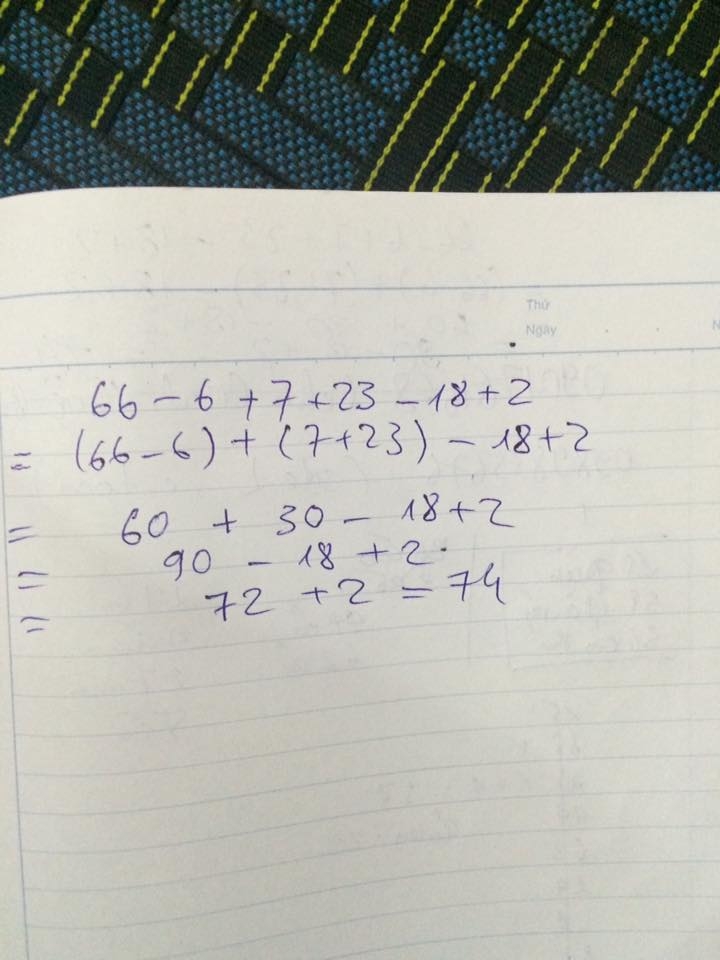 Thứ
Ngày
66 - 6 + 7 + 23 - 18 + 2
= (66 - 6) + (7 + 23) - 18 + 2
= 60 + 30 - 18 + 2
= 90 - 18 + 2
= 72 + 2 = 74